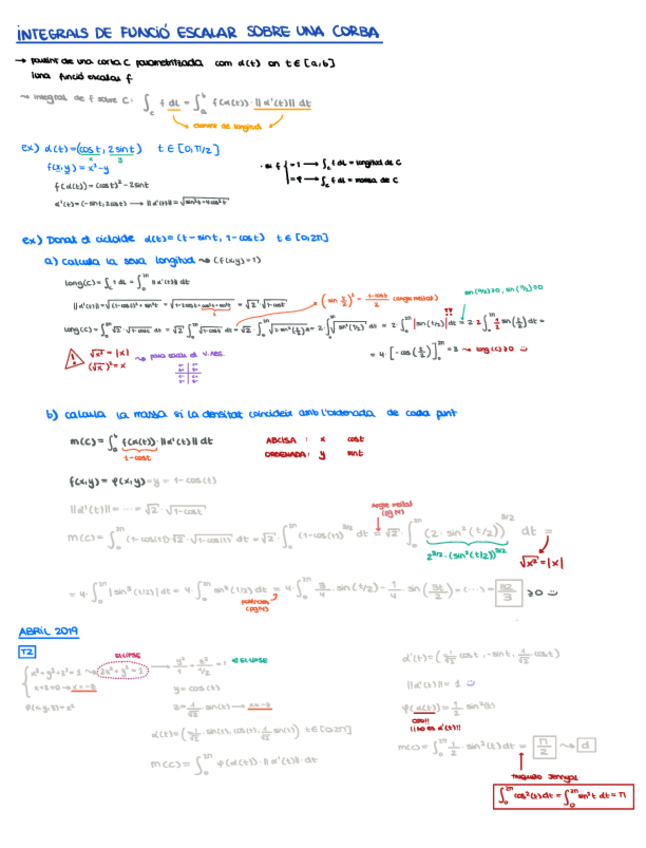 INTEGRALS DE FUNCIÓ ESCALAR SOBRE UNA CORBA
→ partint de una corba C parametritzada com α(t) on t∈[a,b]
i una funció escalar f
~ integral de f sobre C: ∫_C f dL = ∫_a^b f(α(t))·||α'(t)|| dt
element de longitud
ex) α(t)=(cost, 2sint) t∈[0,π/2]
x y
f(x,y) = x²-y
· si f { =1 → ∫_C f dL = longitud de C
=φ → ∫_C f dL = massa de C
f(α(t)) = (cost)² - 2sint
α'(t) = (-sint, 2cost) → ||α'(t)|| = √(sin²t+4cos²t)
ex) Donat el cicloide α(t)=(t-sint, 1-cost) t∈[0,2π]
a) Calcula la seva longitud ~ (f(x,y)=1)
long(C) = ∫_C 1 dL = ∫_0^2π ||α'(t)|| dt
||α'(t)|| = √((1-cost)²+sin²t) = √(1-2cost+cos²t+sin²t) = √2·√(1-cost)
1
(sin t/2)² = (1-cost)/2 (angle meitat)
sin(t/2)≥0, sin(t/2)≥0
long(C) = ∫_0^2π √2·√(1-cost) dt = √2·∫_0^2π √(1-cost) dt = √2·∫_0^2π √(2·sin²(t/2)) dt = 2·∫_0^2π √(sin²(t/2)) dt = 2·∫_0^2π |sin(t/2)| dt = 2·2∫_0^2π ½ sin(t/2) dt =
!!
= 4·[-cos(t/2)]_0^2π = 8 → long(C)≥0 :)
! √x² = |x|
(√x)² = x
b) calcula la massa si la densitat coincideix amb l'ordenada de cada punt
m(C) = ∫_a^b f(α(t))·||α'(t)|| dt
1-cost
ABCISA : x cost
ORDENADA : y sint
f(x,y) = φ(x,y) = y = 1-cos(t)
||α'(t)|| = ··· = √2·√(1-cost)
angle meitat
m(C) = ∫_0^2π (1-cos(t))·√2·√(1-cos(t)) dt = √2·∫_0^2π (1-cos(t))^3/2 dt = √2·∫_0^2π (2·sin²(t/2))^3/2 dt =
2^3/2·(sin²(t/2))^3/2
√x² = |x|
= 4·∫_0^2π |sin³(t/2)| dt = 4·∫_0^2π sin³(t/2) dt = 4·∫_0^2π ¾·sin(t/2) - ¼·sin(3t/2) = (···) = 32/3 ≥0 :)
ABRIL 2019
T2
{ x²+y²+z²=1 ~ 2x²+y²=1 → y²/1 + x²/½ = 1 EL·LIPSE
x+z=0 → x=-z
φ(x,y,z)=x²
y = cos(t)
z = 1/√2·sin(t) → x=-z
α(t) = (-1/√2·sin(t), cos(t), 1/√2 sin(t)) t∈[0,2π]
m(C) = ∫_0^2π φ(α(t))·||α'(t)||·dt
α'(t) = (-1/√2 cost, -sint, 1/√2·cost)
||α'(t)|| = 1 :)
φ(α(t)) = ½ sin²(t)
m(C) = ∫_0^2π ½·sin²(t) dt = π/2 ~ d
∫_0^2π cos²(t) dt = ∫_0^2π sin²t dt = π